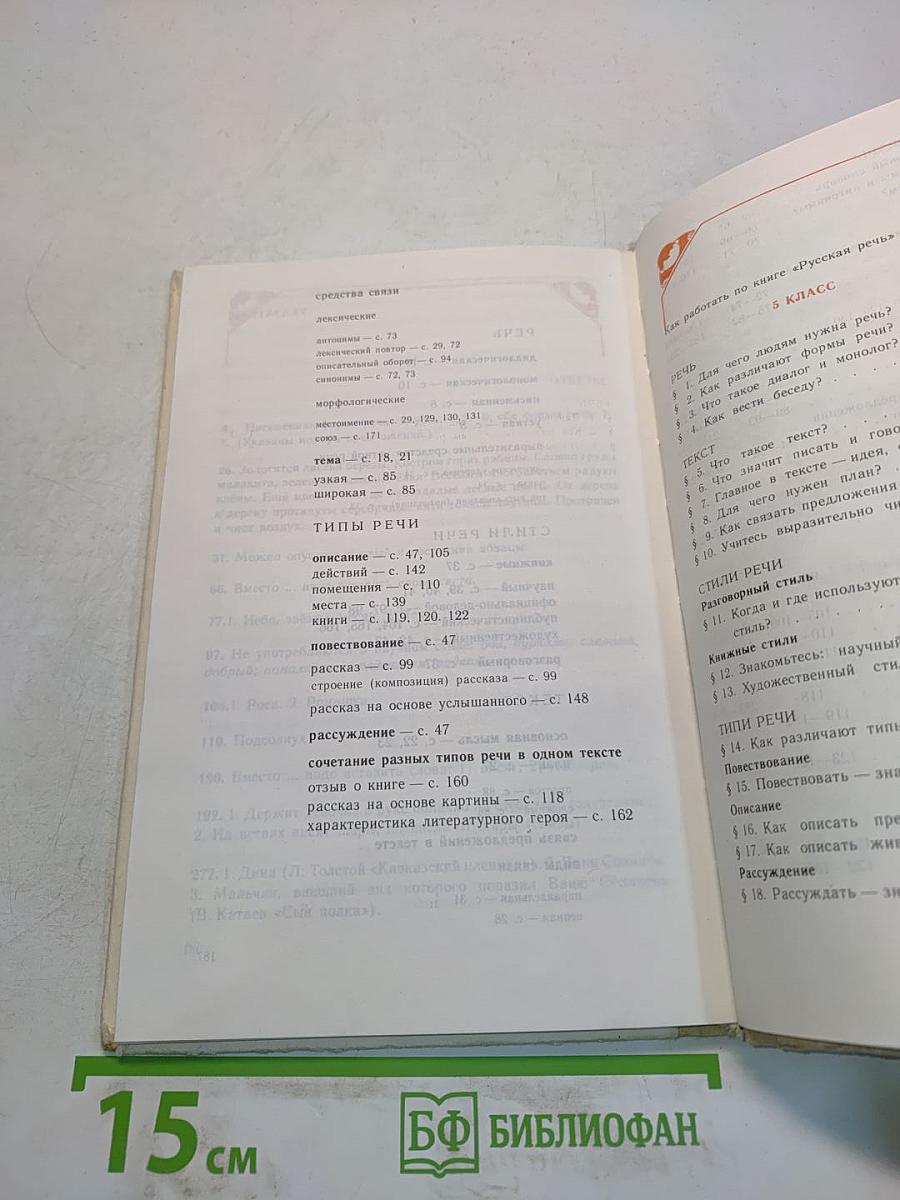 средства связи
лексические
антонимы — с. 73
лексический повтор — с. 29, 72
описательный оборот — с. 94
синонимы — с. 72, 73
морфологические
местоимение — с. 29, 129, 130, 131
союз — с. 171
тема — с. 18, 21
узкая — с. 85
широкая — с. 85
ТИПЫ РЕЧИ
описание — с. 47, 105
действий — с. 142
помещения — с. 110
места — с. 139
книги — с. 119, 120, 122
повествование — с. 47
рассказ — с. 99
строение (композиция) рассказа — с. 99
рассказ на основе услышанного — с. 148
рассуждение — с. 47
сочетание разных типов речи в одном тексте
отзыв о книге — с. 160
рассказ на основе картины — с. 118
характеристика литературного героя — с. 162
Как работать по книге «Русская речь»
5 КЛАСС
РЕЧЬ
§ 1. Для чего людям нужна речь?
§ 2. Как различают формы речи?
§ 3. Что такое диалог и монолог?
§ 4. Как вести беседу? . . . .
ТЕКСТ
§ 5. Что такое текст? . . .
§ 6. Что значит писать и гово
§ 7. Главное в тексте — идея,
§ 8. Для чего нужен план?
§ 9. Как связать предложения
§ 10. Учитесь выразительно чи
СТИЛИ РЕЧИ
Разговорный стиль
§ 11. Когда и где используют
стиль? . . . . .
Книжные стили
§ 12. Знакомьтесь: научный
§ 13. Художественный сти
ТИПИ РЕЧИ
§ 14. Как различают типы
Повествование
§ 15. Повествовать — зна
Описание
§ 16. Как описать пре
§ 17. Как описать жив
Рассуждение
§ 18. Рассуждать — зн
15 см
БФ БИБЛИОФАН